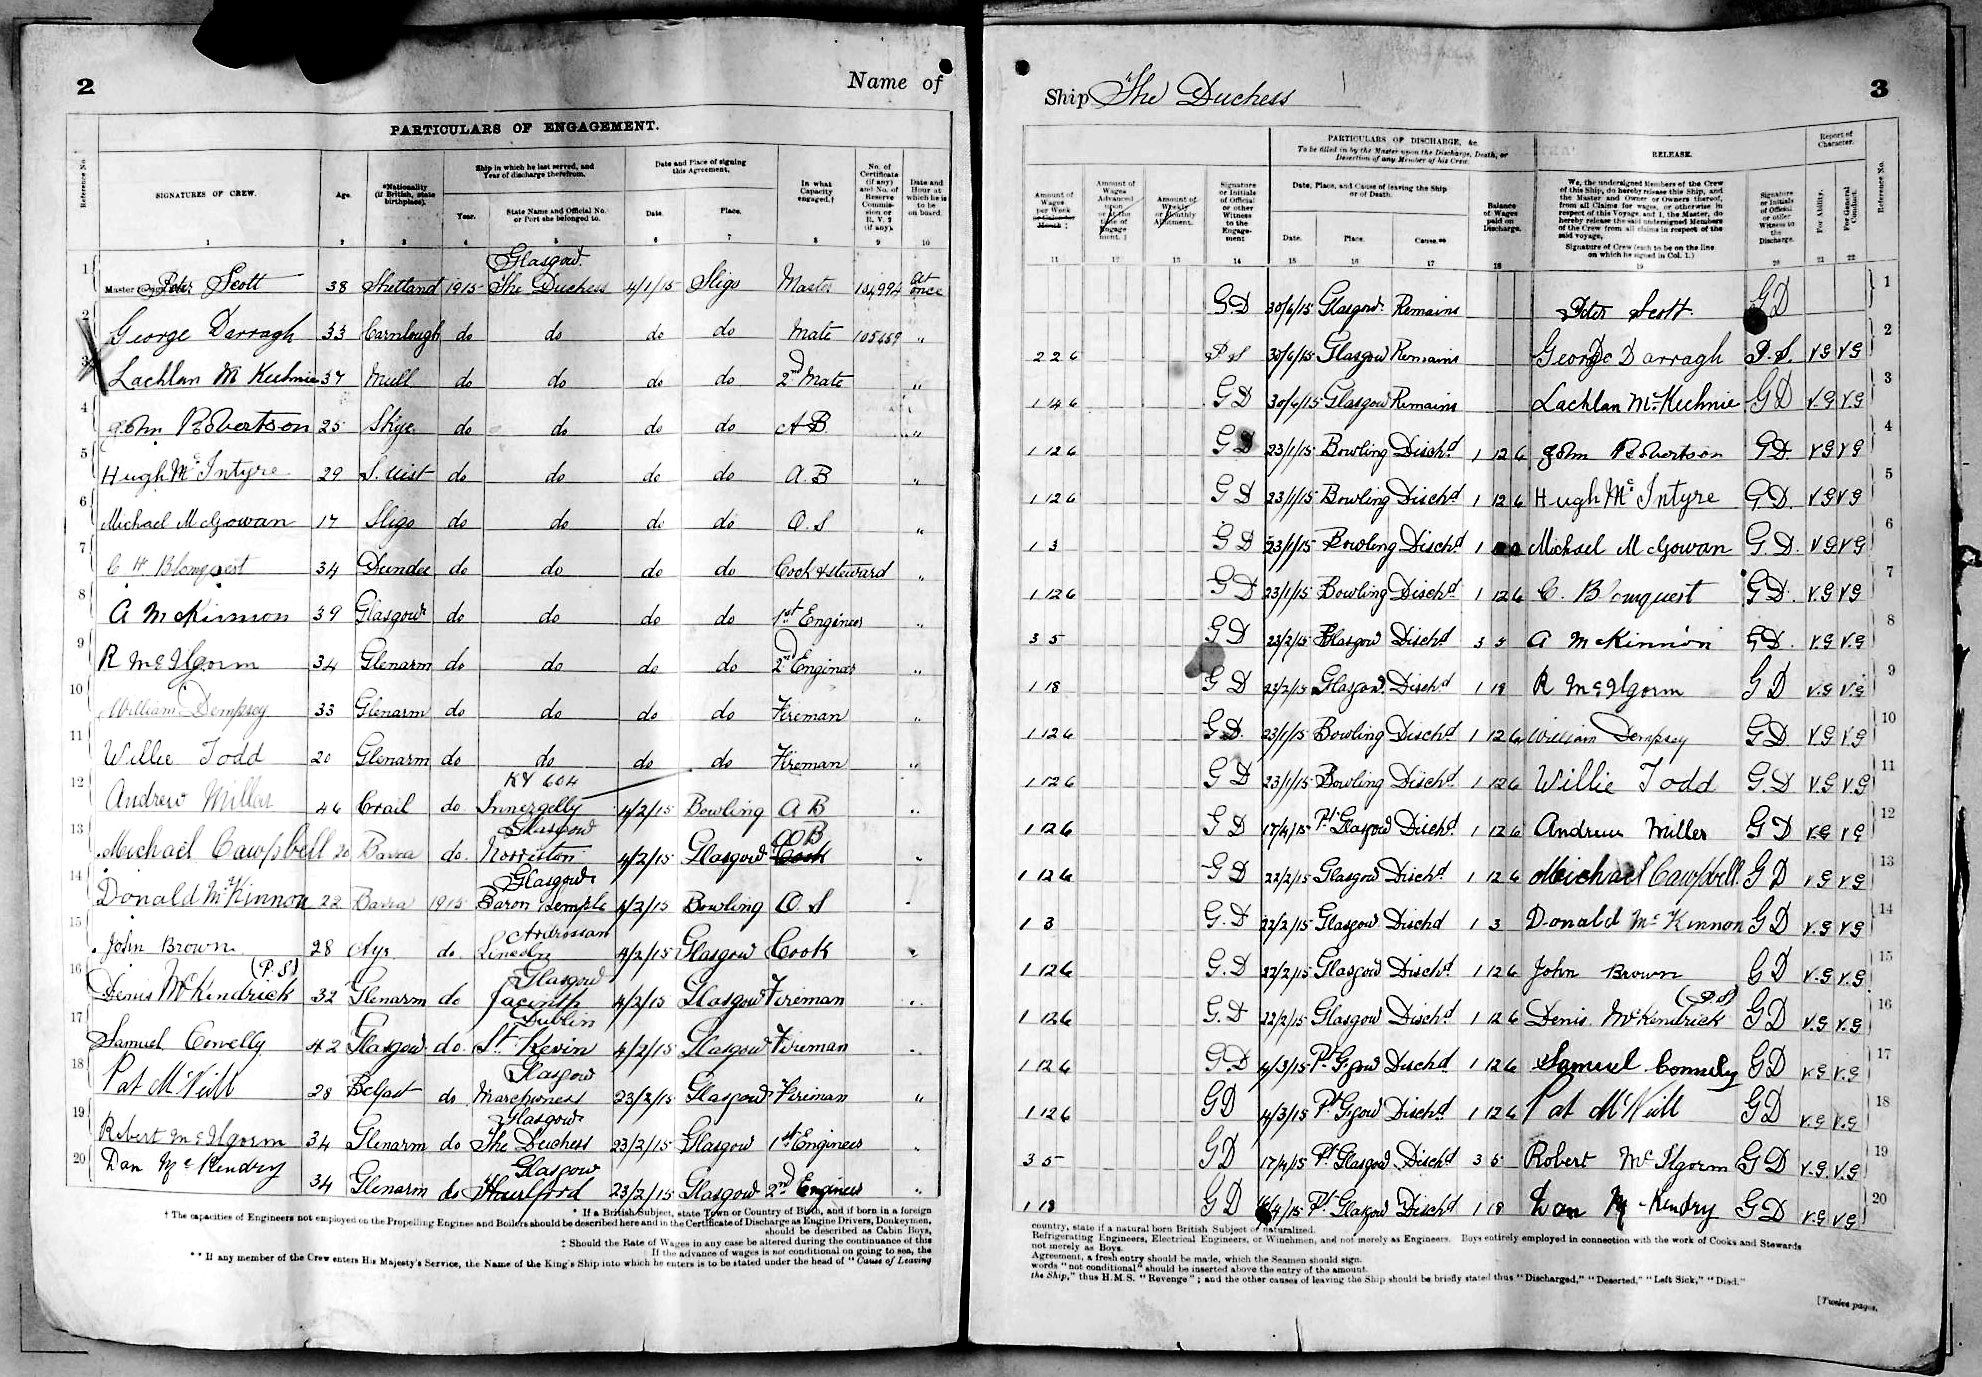 2
Name of
PARTICULARS OF ENGAGEMENT.
Reference No.
SIGNATURES OF CREW.
Age.
*Nationality (if British, state birthplace).
Ship in which he last served, and Year of discharge therefrom.
Year.
State Name and Official No. or Port she belonged to.
Date and Place of signing this Agreement.
Date.
Place.
In what Capacity engaged.†
No. of Certificate (if any) and No. of Reserve Commission or R.V.2 (if any).
Date and Hour at which he is to be on board.
1 2 3 4 5 6 7 8 9 10
Glasgow
1 Peter Scott 38 Shetland 1915 The Duchess 4/1/15 Sligo Master 104994 At once
2 George Darragh 33 Carnlough do do do do Mate 105659 "
3 Lachlan McKechnie 37 Mull do do do do 2nd Mate "
4 John Robertson 25 Skye do do do do A B "
5 Hugh McIntyre 29 S. Uist do do do do A. B "
6 Michael McGowan 17 Sligo do do do do O. S "
7 C H Blomquest 34 Dundee do do do do Cook & steward "
8 A McKinnon 39 Glasgow do do do do 1st Engineer "
9 R McIlgorm 34 Glenarm do do do do 2nd Engineer "
10 William Dempsey 33 Glenarm do do do do Fireman "
11 Willie Todd 20 Glenarm do do do do Fireman "
KY 604
12 Andrew Miller 46 Crail do. Innergelly 4/2/15 Bowling A B "
Glasgow
13 Michael Campbell 20 Barra do. Norriston 4/2/15 Glasgow Cook "
Glasgow
14 Donald McKinnon 22 Barra 1915 Baron Semple 4/2/15 Bowling O. S "
Ardrossan
15 John Brown 28 Ayr do. Lincoln 4/2/15 Glasgow Cook "
(P.S) Glasgow
16 Denis McKendrick 32 Glenarm do Jacinth 4/2/15 Glasgow Fireman "
Dublin
17 Samuel Conelly 42 Glasgow do. St Kevin 4/2/15 Glasgow Fireman "
Glasgow
18 Pat McNeill 28 Belfast do Marchioness 23/2/15 Glasgow Fireman "
Glasgow
19 Robert McIlgorm 34 Glenarm do The Duchess 23/2/15 Glasgow 1st Engineer "
Glasgow
20 Dan McKendry 34 Glenarm do Hurlford 23/2/15 Glasgow 2nd Engineer "
* If a British Subject, state Town or Country of Birth, and if born in a foreign
† The capacities of Engineers not employed on the Propelling Engines and Boilers should be described here and in the Certificate of Discharge as Engine Drivers, Donkeymen,
should be described as Cabin Boys,
‡ Should the Rate of Wages in any case be altered during the continuance of this
If the advance of wages is not conditional on going to sea, the
** If any member of the Crew enters His Majesty's Service, the Name of the King's Ship into which he enters is to be stated under the head of "Cause of Leaving
Ship "The Duchess
3
PARTICULARS OF DISCHARGE, &c.
To be filled in by the Master upon the Discharge, Death, or Desertion of any Member of his Crew.
RELEASE.
Report of Character.
Amount of Wages per Week or Calendar Month ‡
Amount of Wages Advanced upon or at the time of Engagement. ‖
Amount of Weekly or Monthly Allotment.
Signature or Initials of Official or other Witness to the Engagement
Date, Place, and Cause of leaving the Ship or of Death.
Date.
Place.
Cause.**
Balance of Wages paid on Discharge.
We, the undersigned Members of the Crew of this Ship, do hereby release this Ship, and the Master and Owner or Owners thereof, from all Claims for wages, or otherwise in respect of this Voyage, and I, the Master, do hereby release the said undersigned Members of the Crew from all claims in respect of the said voyage.
Signature of Crew (each to be on the line on which he signed in Col. 1.)
Signature or Initials of Official or other Witness to the Discharge.
For Ability.
For General Conduct.
Reference No.
11 12 13 14 15 16 17 18 19 20 21 22
G.D 30/6/15 Glasgow Remains Peter Scott G D 1
2 2 6 P. S 30/6/15 Glasgow Remains George Darragh P. S. V.G V.G 2
1 14 6 G D 30/6/15 Glasgow Remains Lachlan McKechnie G D V.G V.G 3
1 12 6 G D 23/1/15 Bowling Dischd 1 12 6 John Robertson G D. V G V G 4
1 12 6 G D 23/1/15 Bowling Dischd 1 12 6 Hugh McIntyre G D. V G V G 5
1 3 G D 23/1/15 Bowling Dischd 1 Michael McGowan G. D. V G V G 6
1 12 6 G D 23/1/15 Bowling Dischd 1 12 6 C. Blomquest G D. V.G V G 7
3 5 G D 23/2/15 Glasgow Dischd 3 5 A McKinnon G D. V.G V.G 8
1 18 G D 23/2/15 Glasgow Dischd 1 18 R McIlgorm G D V.G V.G 9
1 12 6 G D. 23/1/15 Bowling Dischd 1 12 6 William Dempsey G D V.G V.G 10
1 12 6 G D 23/1/15 Bowling Dischd 1 12 6 Willie Todd G. D V.G V.G 11
1 12 6 G D 17/4/15 Pt Glasgow Dischd 1 12 6 Andrew Miller G D V.G V G 12
1 12 6 G D 22/2/15 Glasgow Dischd 1 12 6 Michael Campbell. G D V.G V G 13
1 3 G. D 22/2/15 Glasgow Dischd 1 3 Donald McKinnon G D V.G V G 14
1 12 6 G. D 22/2/15 Glasgow Dischd 1 12 6 John Brown G D V.G V.G 15
(P.S)
1 12 6 G. D 22/2/15 Glasgow Dischd 1 12 6 Denis McKendrick G D V.G V.G 16
1 12 6 G. D 4/3/15 Pt Ggow Dischd 1 12 6 Samuel Connely G D V.G V.G 17
1 12 6 G D 4/3/15 Pt Ggow Dischd 1 12 6 Pat McNeill G D V.G V.G 18
3 5 G D 17/4/15 Pt Glasgow Dischd 3 5 Robert McIlgorm G D V.G V.G 19
1 18 G D 16/4/15 Pt Glasgow Dischd 1 18 Dan McKendry G D V.G V.G 20
country, state if a natural born British Subject or naturalized.
Refrigerating Engineers, Electrical Engineers, or Winchmen, and not merely as Engineers. Boys entirely employed in connection with the work of Cooks and Stewards
not merely as Boys.
Agreement, a fresh entry should be made, which the Seamen should sign.
words "not conditional" should be inserted above the entry of the amount.
the Ship," thus H.M.S. "Revenge"; and the other causes of leaving the Ship should be briefly stated thus "Discharged," "Deserted," "Left Sick," "Died."
[Twelve pages.